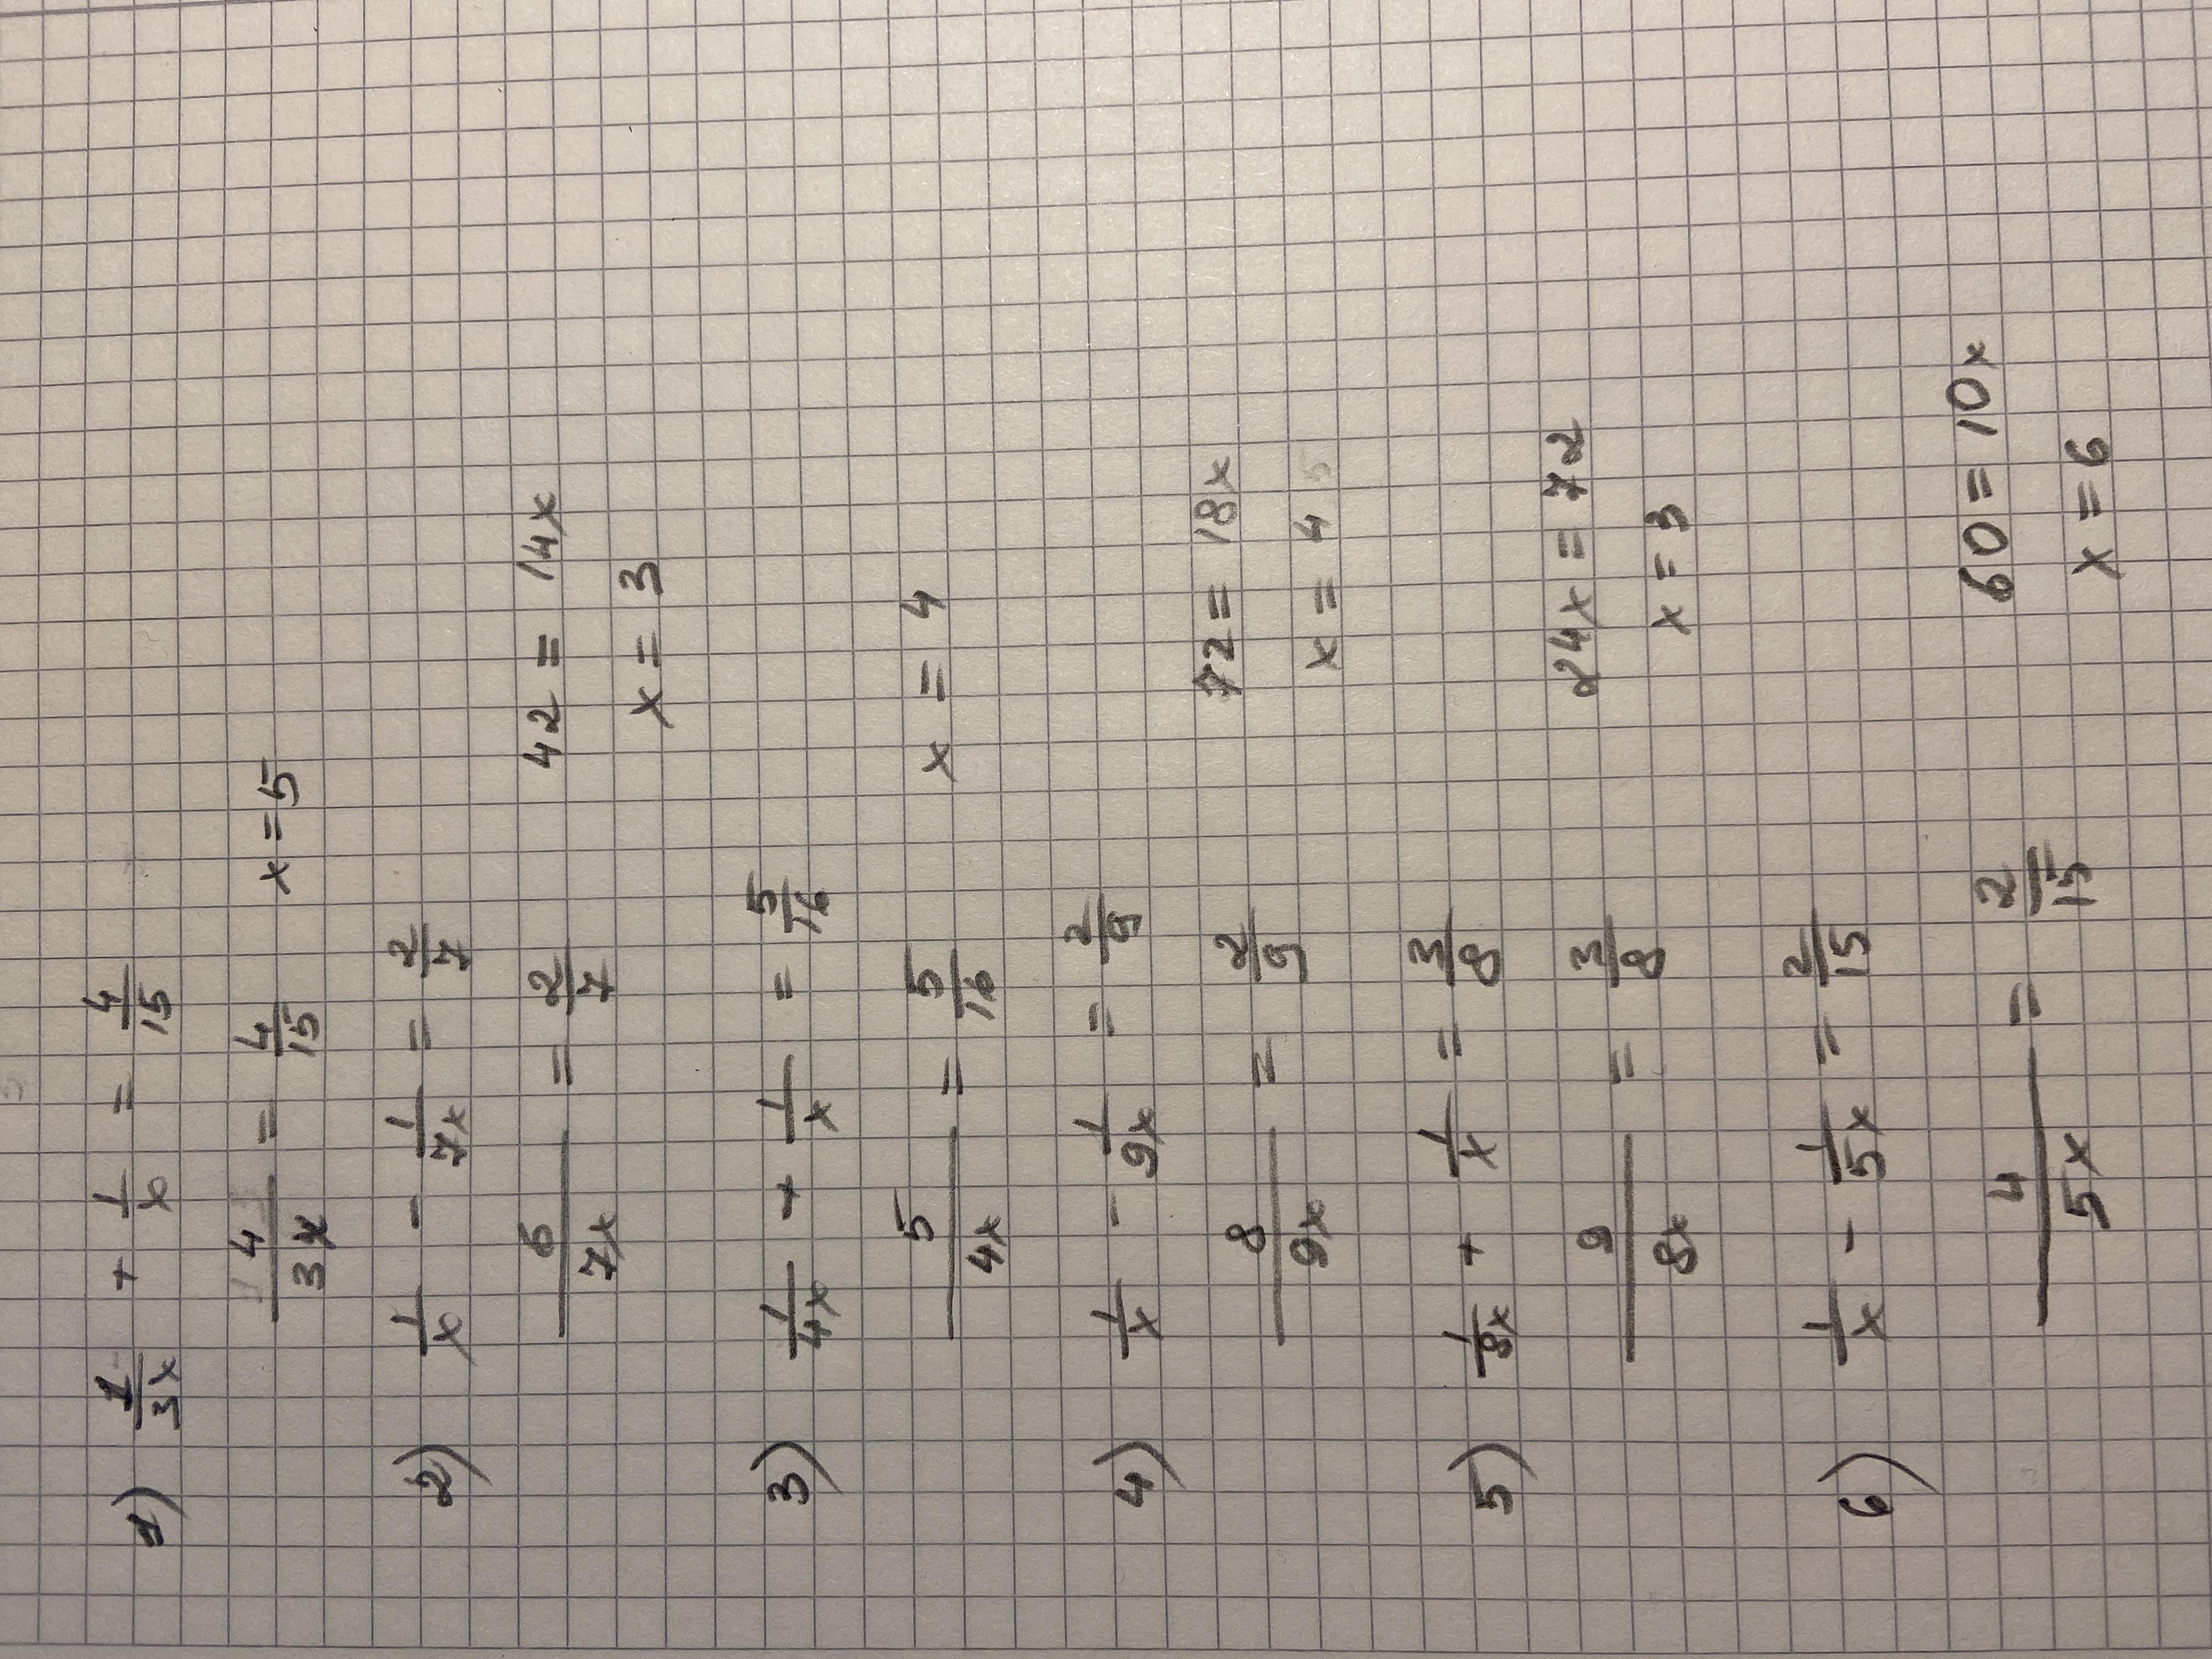 1) 1/3x + 1/x = 4/15
4/3x = 4/15 x = 5
2) 1/x - 1/7x = 2/7
6/7x = 2/7 42 = 14x
x = 3
3) 1/4x + 1/x = 5/16
5/4x = 5/16 x = 4
4) 1/x - 1/9x = 2/9
8/9x = 2/9 72 = 18x
x = 4
5) 1/8x + 1/x = 3/8
9/8x = 3/8 24x = 72
x = 3
6) 1/x - 1/5x = 2/15
4/5x = 2/15 60 = 10x
x = 6